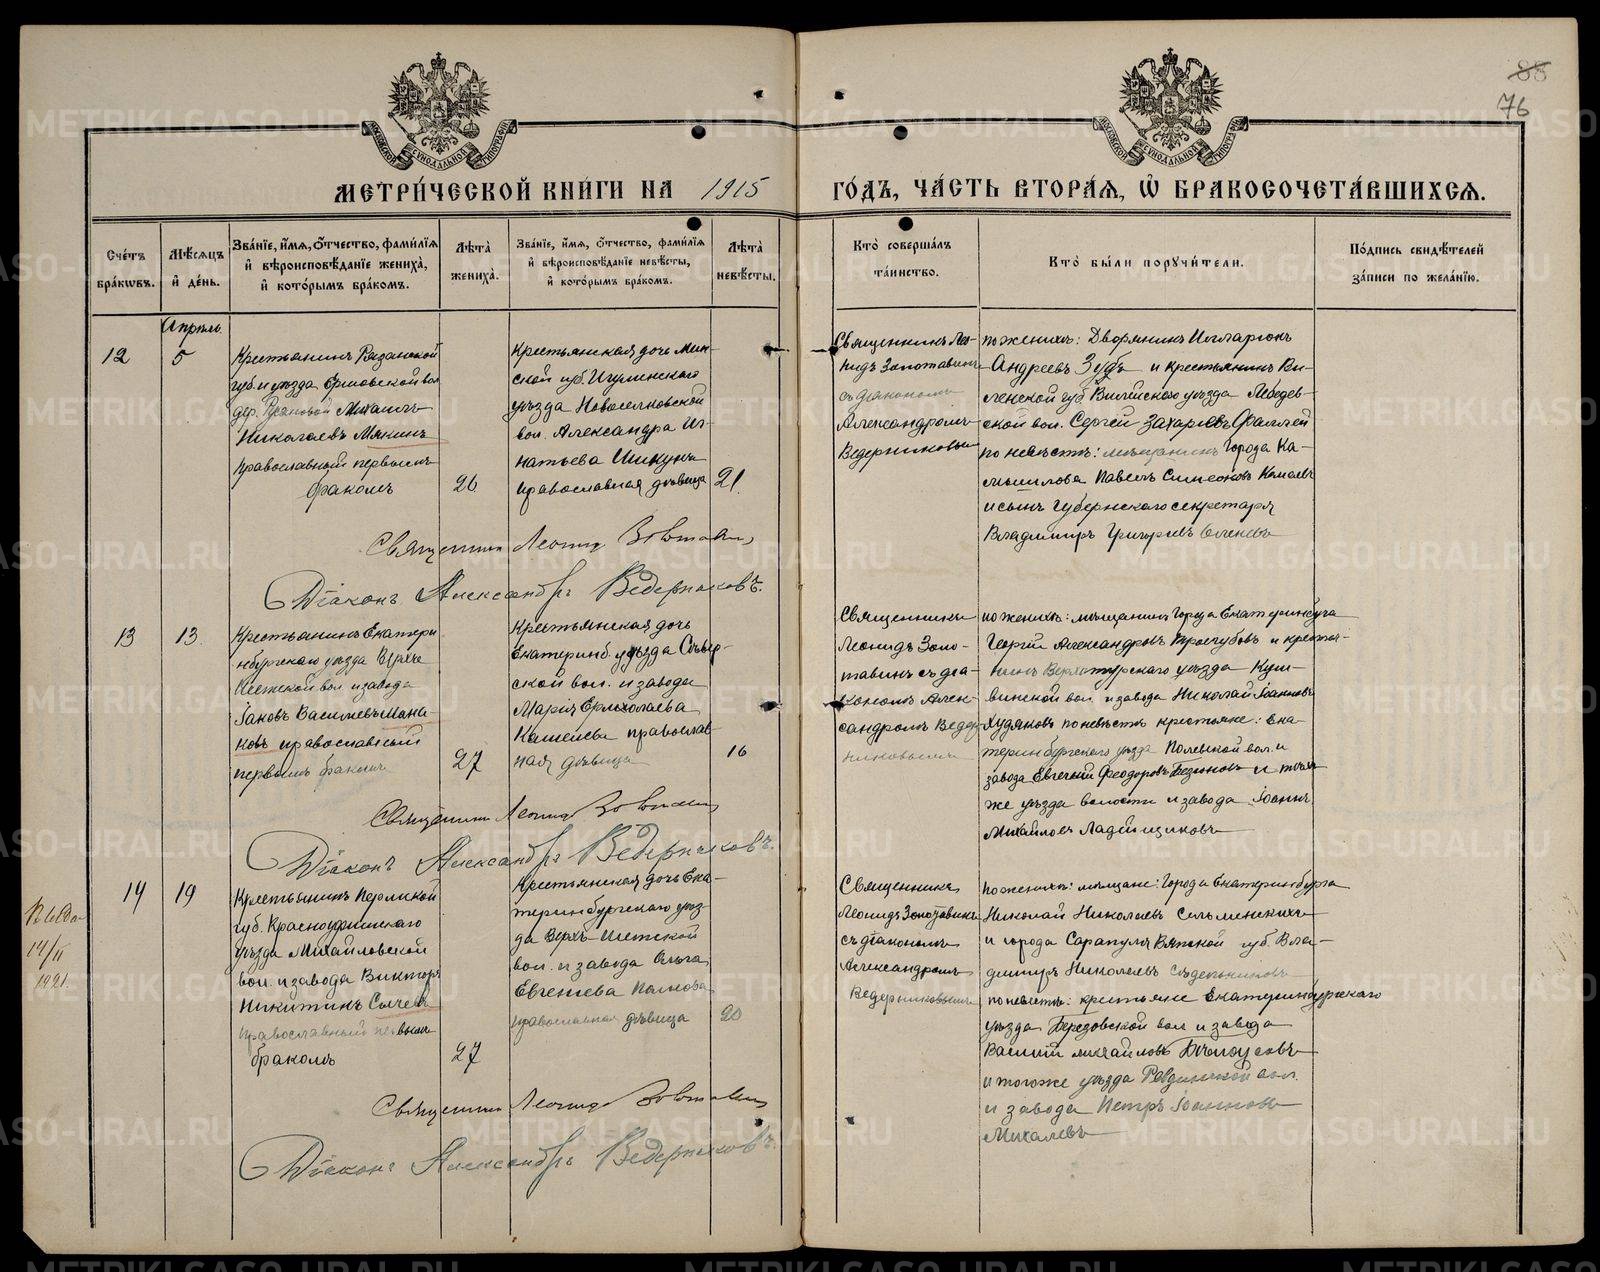 88
76
МЕТРИ́ЧЕСКОЙ КНИ́ГИ НА 1915 ГО́ДЪ, ЧА́СТЬ ВТОРА́Я, Ѡ҆ БРАКОСОЧЕТА́ВШИХСЯ.
Сче́тъ бра́кѡвъ.
Мѣ́сяцъ и҆ де́нь.
Зва́нїе, и҆́мя, ѻ҆́тчество, фами́лїя и҆ вѣроисповѣ́данїе жениха̀, и҆ кото́рымъ бра́комъ.
Лѣта̀ жениха̀.
Зва́нїе, и҆́мя, ѻ҆́тчество, фами́лїя и҆ вѣроисповѣ́данїе невѣ́сты, и҆ кото́рымъ бра́комъ.
Лѣта̀ невѣ́сты.
Кто̀ соверша́лъ та́инство.
Кто̀ бы́ли порꙋчи́тели.
По́дпись свидѣ́телей за́писи по жела́нїю.
Апрѣль
12
5
Крестьянинъ Рязанской
губ. и уѣзда Ершовской вол
дер. Михаилъ
Николаевъ Мякинъ
православный первымъ
бракомъ
26
Крестьянская дочь Мин-
ской губ. Игуменскаго
уѣзда Новоселковской
вол. Александра Иг-
натьева Шикунъ
православная дѣвица
21.
Священникъ Лео-
нидъ Золотавинъ
съ діакономъ
Александромъ
Ведерниковымъ
по женихѣ: Дворянинъ Илларіонъ
Андреевъ Зубъ и крестьянинъ Ви-
ленской губ Вилейскаго уѣзда Лебедев-
ской вол. Сергей Захаріевъ
по невѣстѣ: мѣщанинъ города Ка-
мышлова Павелъ Симеоновъ
и сынъ Губернскаго секретаря
Владиміръ Григорьевъ
Священникъ Леонидъ Золотавинъ
Діаконъ Александръ Ведерниковъ.
13
13.
Крестьянинъ Екатери
нбургскаго уѣзда Верхъ
Исетской вол и завода
Іаковъ Васильевъ Мана-
ковъ православный
первымъ бракомъ
27
Крестьянская дочь
Екатеринб уѣзда Сѣвер-
ской вол. и завода
Марія Ермолаева
православ-
ная дѣвица
16
Священникъ
Леонидъ Золо-
тавинъ съ діа-
кономъ Алек-
сандромъ Ведер
никовымъ
по женихѣ: мѣщанинъ города Екатеринбурга
Георгій Александровъ и крестья-
нинъ Верхотурскаго уѣзда Куш-
винской вол. и завода Николай Іоанновъ
Худяковъ по невѣстѣ крестьяне: Ека-
теринбургскаго уѣзда Полевской вол. и
завода Евгеній Феодоровъ и того
же уѣзда волости и завода Іоаннъ
Михайловъ Ладейщиковъ
Священникъ Леонидъ Золотавинъ
Діаконъ Александръ Ведерниковъ.
14/II
1921.
14
19
Крестьянинъ Пермской
губ. Красноуфимскаго
уѣзда Михайловской
вол. и завода Викторъ
Никитинъ Сычевъ
православный первымъ
бракомъ
27
Крестьянская дочь Ека-
теринбургскаго уѣз-
да Верхъ-Исетской
вол. и завода Ольга
Евгеніева
православная дѣвица
20
Священникъ
Леонидъ Золотавинъ
съ діакономъ
Александромъ
Ведерниковымъ
по женихѣ: мѣщане: города Екатеринбурга
Николай Николаевъ
и города Сарапула Вятской губ. Вла-
диміръ Николаевъ
по невѣстѣ: крестьяне Екатеринбургскаго
уѣзда Березовской вол и завода
Василій Михайловъ
и того же уѣзда Ревдинской вол.
и завода Петръ Іоанновъ
Михалевъ
Священникъ Леонидъ Золотавинъ
Діаконъ Александръ Ведерниковъ.
METRIKI.GASO-URAL.RU